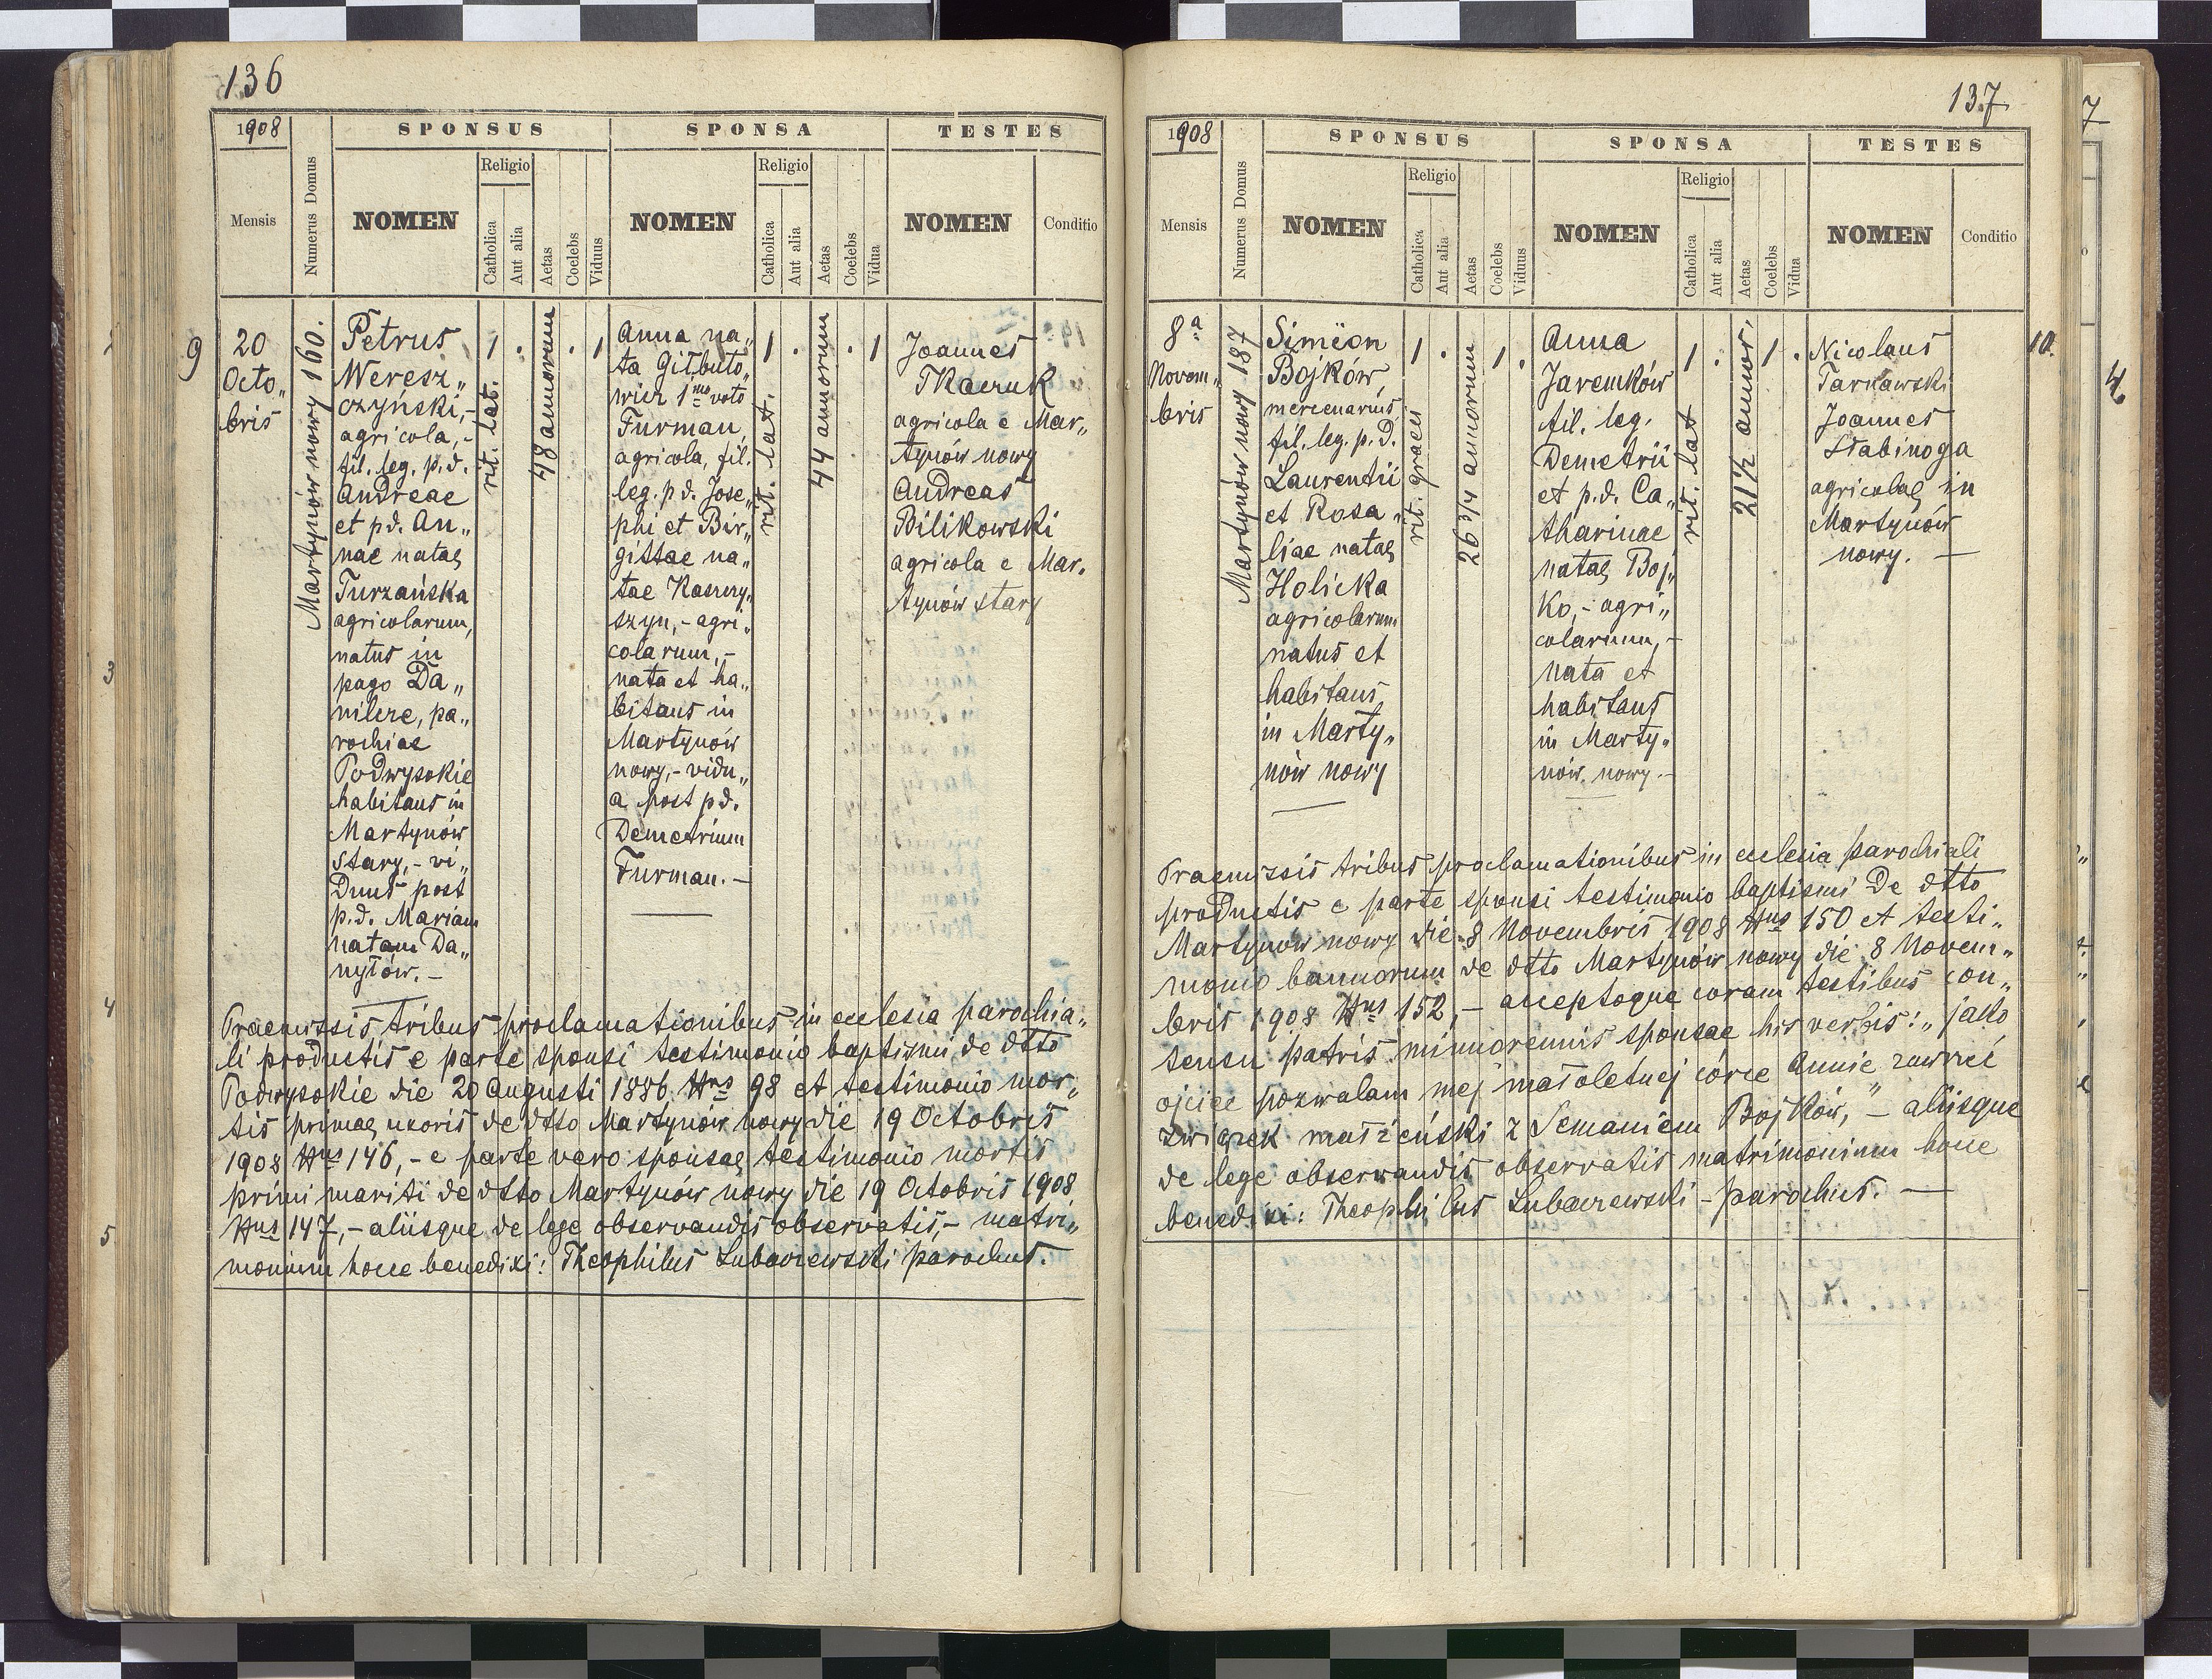 136
1908
SPONSUS
SPONSA
TESTES
Mensis
Numerus Domus
NOMEN
Religio
Catholica
Aut alia
Aetas
Coelebs
Viduus
NOMEN
Religio
Catholica
Aut alia
Aetas
Coelebs
Vidua
NOMEN
Conditio
9
20
Octo„
bris
Martynów nowy 160.
Petrus
Weresz„
czyński,-
agricola,-
fil. leg. p.d.
Andreae
et pd. An„
nae natae
Turzańska
agricolarum,
natus in
pago Da„
nilcze, pa„
rochiae
Podwysokie
habitans in
Martynów
stary,- vi„
duus post
p.d. Mariam
natam Da„
nyłów.-
1
rit. lat.
.
48 annorum
.
1
Anna na„
ta Gilbuto„
wicz 1mo voto
Furman,
agricola, fil.
leg. pd. Jose„
phi et Bir„
gittae na„
tae
szyn,- agri„
colarum,-
nata et ha„
bitans in
Martynów
nowy,- vidu„
a post pd.
Demetrium
Furman.-
1
rit. lat.
.
44 annorum
.
1
Joannes
Tkaczuk
agricola e Mar„
tynów nowy
Andreas
Bilikowski
agricola e Mar„
tynów stary
Praemissis tribus proclamationibus in ecclesia parochia„
li productis e parte sponsi testimonio baptismi de dtto
Podwysokie die 20 Augusti 1886 Nrus 98 et testimonio mor„
tis primae uxoris de dtto Martynów nowy die 19 Octobris
1908 Nrus 146,- e parte vero sponsae testimonio mortis
primi mariti de dtto Martynów nowy die 19 Octobris 1908
Nrus 147,- aliisque de lege observandis observatis,- matri„
monium hocce benedixi: Theophilus Lubaczewski parochus.
137
1908
SPONSUS
SPONSA
TESTES
Mensis
Numerus Domus
NOMEN
Religio
Catholica
Aut alia
Aetas
Coelebs
Viduus
NOMEN
Religio
Catholica
Aut alia
Aetas
Coelebs
Vidua
NOMEN
Conditio
8a
Novem„
bris
Martynów nowy 187
Simeon
Bojków,
mercenarius,
fil. leg. p.d.
Laurentii
et Rosa„
liae natae
Holicka
agricolarum
natus et
habitans
in Marty„
nów nowy
1
rit. graeci
.
26 3/4 annorum
1
.
Anna
Jaremków
fil. leg.
Demetrii
et p.d. Ca„
tharinae
natae Boj„
ko,- agri„
colarum,-
nata et
habitans
in Marty„
nów nowy.-
1
rit. lat
.
21 1/2 annor.
1
.
Nicolaus
Tarnawski
Joannes
Stabinoga
agricolae in
Martynów
nowy. —
10.
Praemissis tribus proclamationibus in ecclesia parochiali
productis e parte sponsi testimonio baptismi de dtto
Martynów nowy die 8 Novembris 1908 Nrus 150 et testi„
monio bannorum de dtto Martynów nowy die 8 Novem„
bris 1908 Nrus 152,- acceptoque coram testibus con„
sensu patris minorennis sponsae his verbis: „jako
ojciec pozwalam mej małoletniej córce Annie zawrzeć
związek małżeński z Semaniem Bojków," - aliisque
de lege observandis observatis matrimonium hocce
benedixi: Theophilus Lubaczewski - parochus. —
3
4
5
7
4